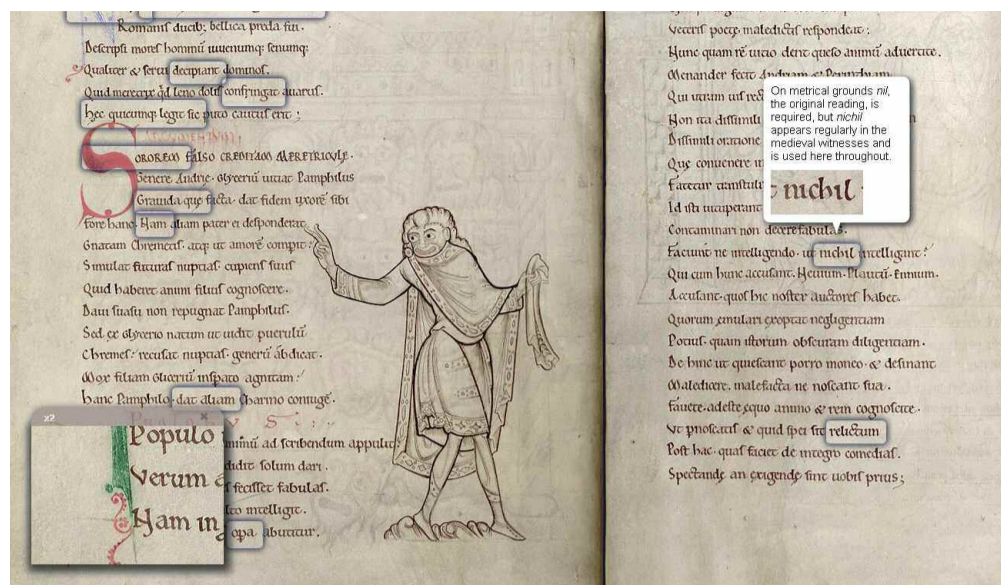 Romanis ducib; bellica preda fui.
Descripsi mores hominū iuuenumq: senumq:
Qualiter & serui decipiant dominos.
Quid meretrix qd leno dolis confringat auarus.
Hec quicumq; legit sic puto cautus erit;
SOROREM FALSO CREDITAM MERETRICULE.
Genere Andrie. Glycerii uitiat Pamphilus
Grauida que facta. dat fidem uxorē sibi
fore hanc. Nam aliam pater ei desponderat
Gnatam Chremetis. atq; ut amorē compit:
Simulat futuras nuptias. cupiens suus
Quid haberet animi filius cognoscere.
Daui suasu non repugnat Pamphilus.
Sed ex Glycerio natum ut uidit puerulū
Chremes: recusat nuptias. generū abdicat.
Mox filiam Glicerii insperato agnitam:
hanc Pamphilo. dat aliam Charino coniugē.
animū ad scribendum appulit
didit solum dari.
s fecisset fabulas.
lto intelligit.
opa abutitur.
x2
Populo
Verum
Nam in
ueteris poete maledictis respondeat;
Nunc quam rē uitio dent queso animū aduertite.
Menander fecit Andriam & Perinthiam
Qui utram uis
Non ita dissimili
Dissimili oratione
Que conuenere
Facetur transtuli
Id isti uituperant
Contaminari non decere fabulas.
Faciunt ne intelligendo. ut nichil intelligant:
Qui cum hunc accusant. Neuium. Plautū. Ennium.
Accusant. quos hic noster auctores habet.
Quorum emulari exoptat negligentiam
Potius. quam istorum obscuram diligentiam.
De hinc ut quiescant porro moneo. & desinant
Maledicere. malefacta ne noscant sua.
fauete. adeste equo animo & rem cognoscite.
Vt pnoscatis & quid spei sit relictum
Post hac. quas faciet de integro comedias.
Spectande an exigende sint uobis prius;
On metrical grounds nil,
the original reading, is
required, but nichil
appears regularly in the
medieval witnesses and
is used here throughout.
nichil